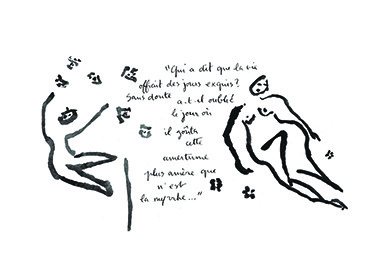 "Qui a dit que la vie
offrait des jours exquis?
Sans doute a.t.il oublié
le jour où
il goûta
cette
amertume
plus amère que
n'est
la myrrhe..."